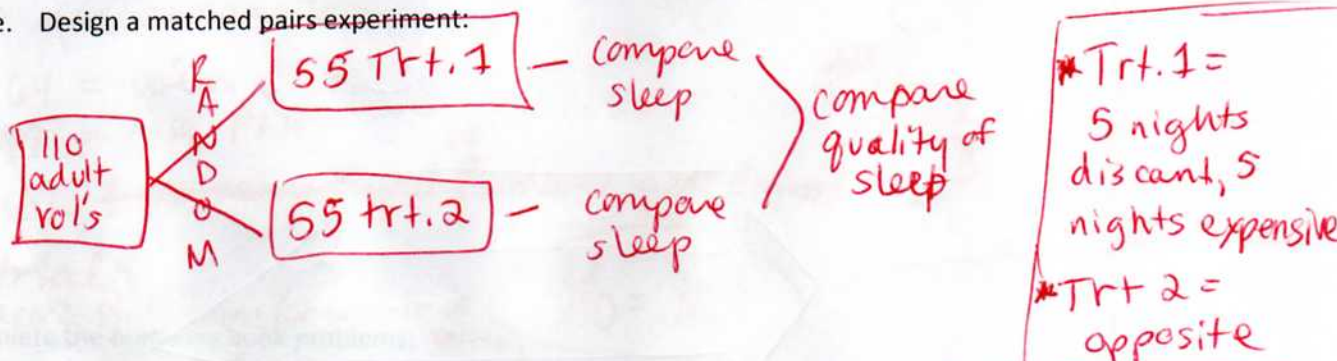 e. Design a matched pairs experiment:
110
adult
vol's
RANDOM
55 Trt. 1
compare
sleep
55 trt. 2
compare
sleep
compare
quality of
sleep
* Trt. 1 =
5 nights
discant, 5
nights expensive
* Trt 2 =
opposite